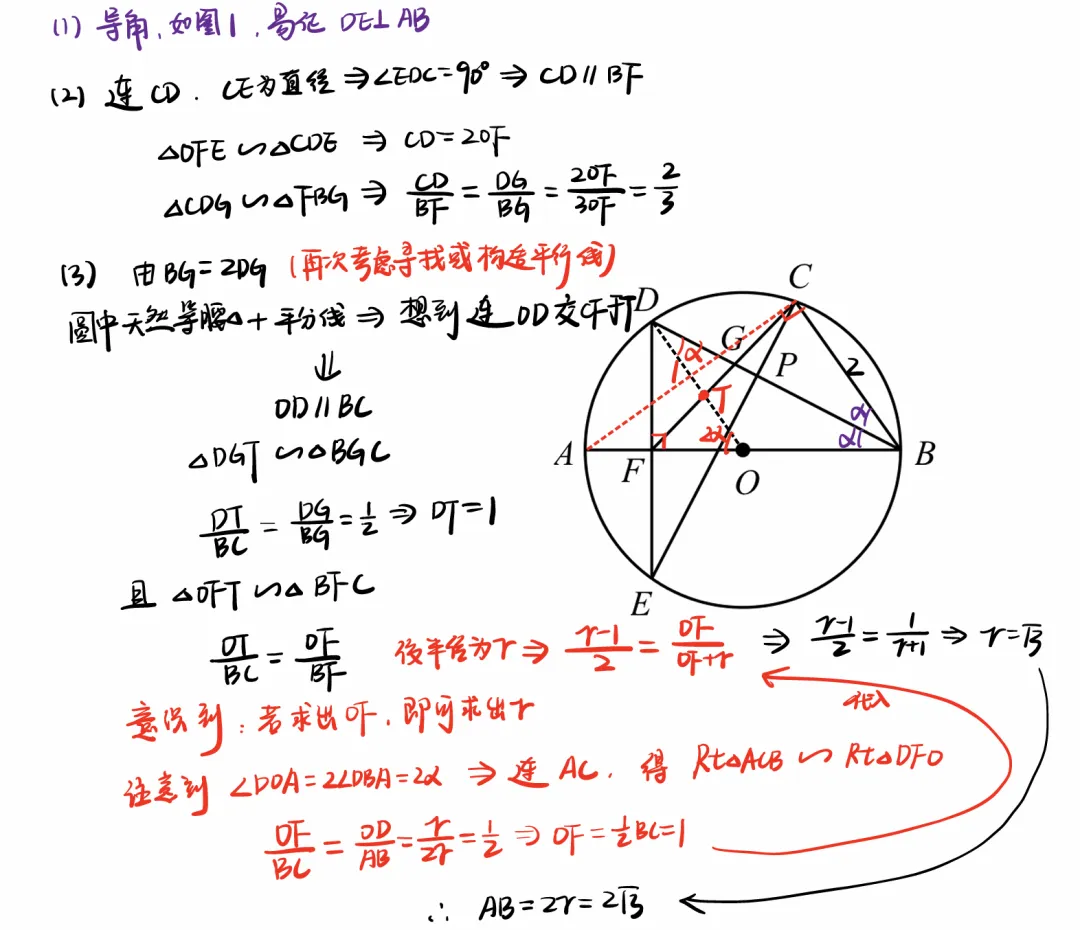 (1) 导角,如图1,易证 DE⊥AB
(2) 连CD. CE为直径⇒∠EDC=90°⇒CD∥BF
△OFE∽△CDE ⇒ CD=2OF
△CDG∽△FBG⇒ CD/BF = DG/BG = 2OF/3OF = 2/3
(3) 由BG=2DG (再次考虑寻找或构造平行线)
图中天然等腰△+平分线⇒想到连OD交CF于T
⇓
OD∥BC
△DGT∽△BGC
DT/BC = DG/BG = 1/2 ⇒ DT=1
且 △OFT∽△BFC
OT/BC = OF/BF 设半径为r⇒ r-1/2 = OF/OF+r ⇒ r-1/2 = 1/r+1 ⇒ r=√3
代入
意识到:若求出OF,即可求出r
注意到 ∠DOA=2∠DBA=2α ⇒ 连AC. 得 Rt△ACB∽Rt△DFO
OF/BC = OD/AB = r/2r = 1/2 ⇒ OF=1/2BC=1
∴ AB=2r=2√3
C
D
G
P
2
α
T
2α
α
α
A
F
O
B
E